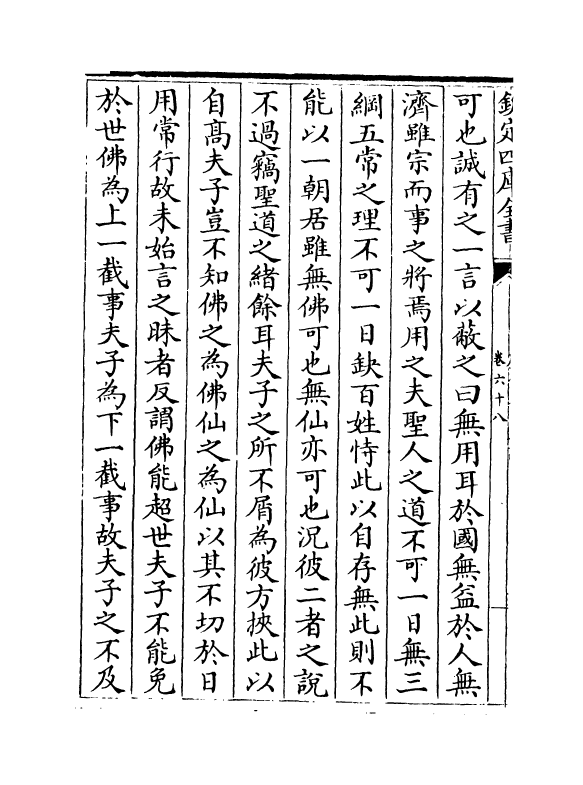 欽定四庫全書
卷六十八
可也誠有之一言以蔽之曰無用耳於國無益於人無
濟雖宗而事之將焉用之夫聖人之道不可一日無三
綱五常之理不可一日缺百姓恃此以自存無此則不
能以一朝居雖無佛可也無仙亦可也況彼二者之說
不過竊聖道之緒餘耳夫子之所不屑為彼方挾此以
自髙夫子豈不知佛之為佛仙之為仙以其不切於日
用常行故未始言之昧者反謂佛能超世夫子不能免
於世佛為上一截事夫子為下一截事故夫子之不及